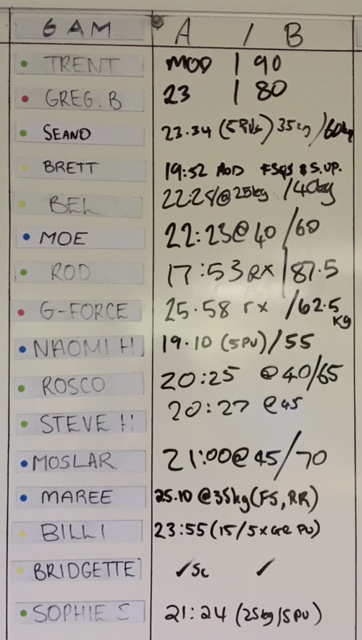 6 AM A / B
TRENT MOD | 90
GREG.B 23 | 80
SEANO 23.34 (5 PU's) 35kg /60kg
BRETT 19:52 MOD FSQS & S.UP.
BEL 22:28@25kg /40kg
MOE 22:23@40/60
ROD 17:53 RX/87.5
G-FORCE 25.58 rx /62.5 kg
NAOMI H 19.10 (5PU)/55
ROSCO 20:25 @40/65
STEVE H 20:27 @45
MOSLAR 21:00@45/70
MAREE 25.10 @35kg(FS, RR)
BILLI 23:55(15/5xGR PU)
BRIDGETTE ✓Sc ✓
SOPHIE S 21:24 (25kg/5PU)